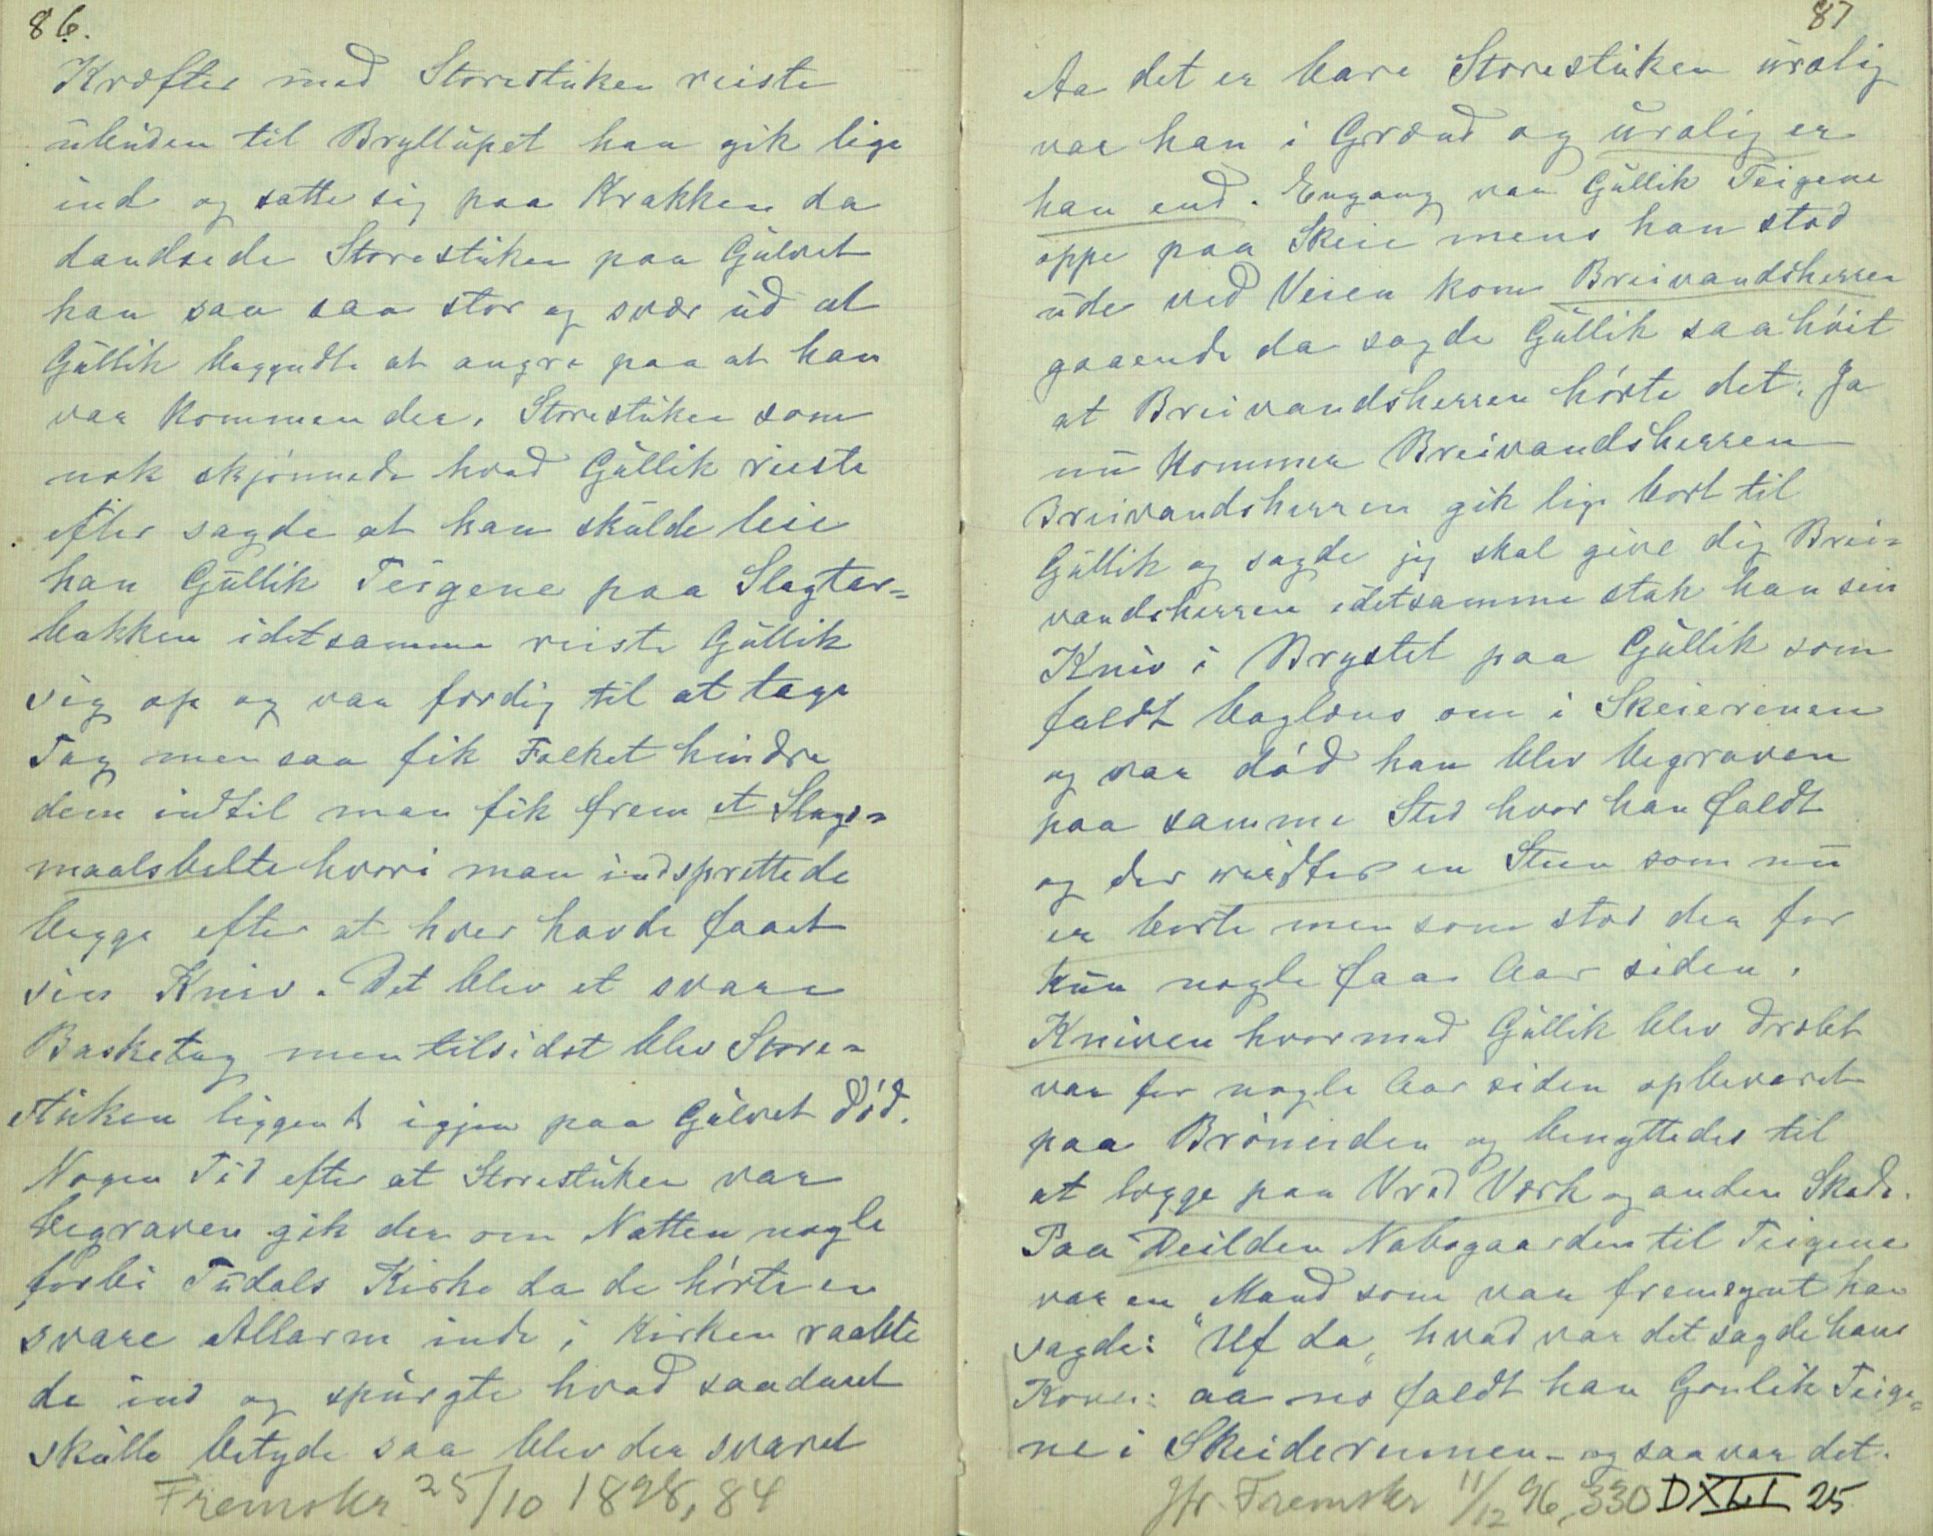 86.
Kræfter med Storestuken reiste
ubuden til Bryllupet han gik lige
ind og satte sig paa Krakken da
dandsede Storestuken paa Gulvet
han saa saa stor og svær ud at
Gullik begyndte at angre paa at han
var kommen der. Storestuken som
nok skjønnede hvad Gullik reiste
efter sagde at han skulde leie
han Gullik Teigene paa Slagtar=
bakken idetsamme reiste Gullik
sig op og var færdig til at tage
Tag men saa fik Folket hindre
dem indtil man fik frem et Slags=
maalsbelte hvori man indsprettede
begge efter at hver havde faaet
sin Kniv. Det blev et svare
Basketag men tilsidst blev Store=
stuken liggende igjen paa Gulvet død.
Nogen Tid efter at Storestuken var
begraven gik der om Natten nogle
forbi Tudals Kirke da de hørte en
svare Allarm inde i Kirken raabte
de ind og spurgte hvad saadant
skulle betyde saa blev der svaret
Fremskr 25/10 1898, 84
87
Aa det er bare Storestuken uralig
var han i Grænd og uralig er
han end. Engang var Gullik Teigene
oppe paa Skeie mens han stod
ude ved Veien kom Breivandsherren
gaaende da sagde Gullik saa høit
at Breivandsherren hørte det: Ja
nu kommer Breivandsherren
Breivandsherren gik lige bort til
Gullik og sagde jeg skal give dig Brei=
vandsherren idetsamme stak han sin
Kniv i Brystet paa Gullik som
faldt baglæns om i Skeierenen
og var død han blev begraven
paa samme Sted hvor han faldt
og der reistes en Steen som nu
er borte men som stod der for
kun nogle faa Aar siden.
Kniven hvormed Gullik blev dræbt
var for nogle Aar siden opbevaret
paa Brøneiden og benyttedes til
at lægge paa Vred Værk og anden Skade.
Paa Deilden Nabogaarden til Teigene
var en Mand som var fremsynt han
sagde: "Uf da" hvad var det sagde hans
Kone: aa no faldt han Gonlik Teige=
ne i Skeiderennen - og saa var det.
Jfr. Fremskr 11/12 96, 330 DXLI 25